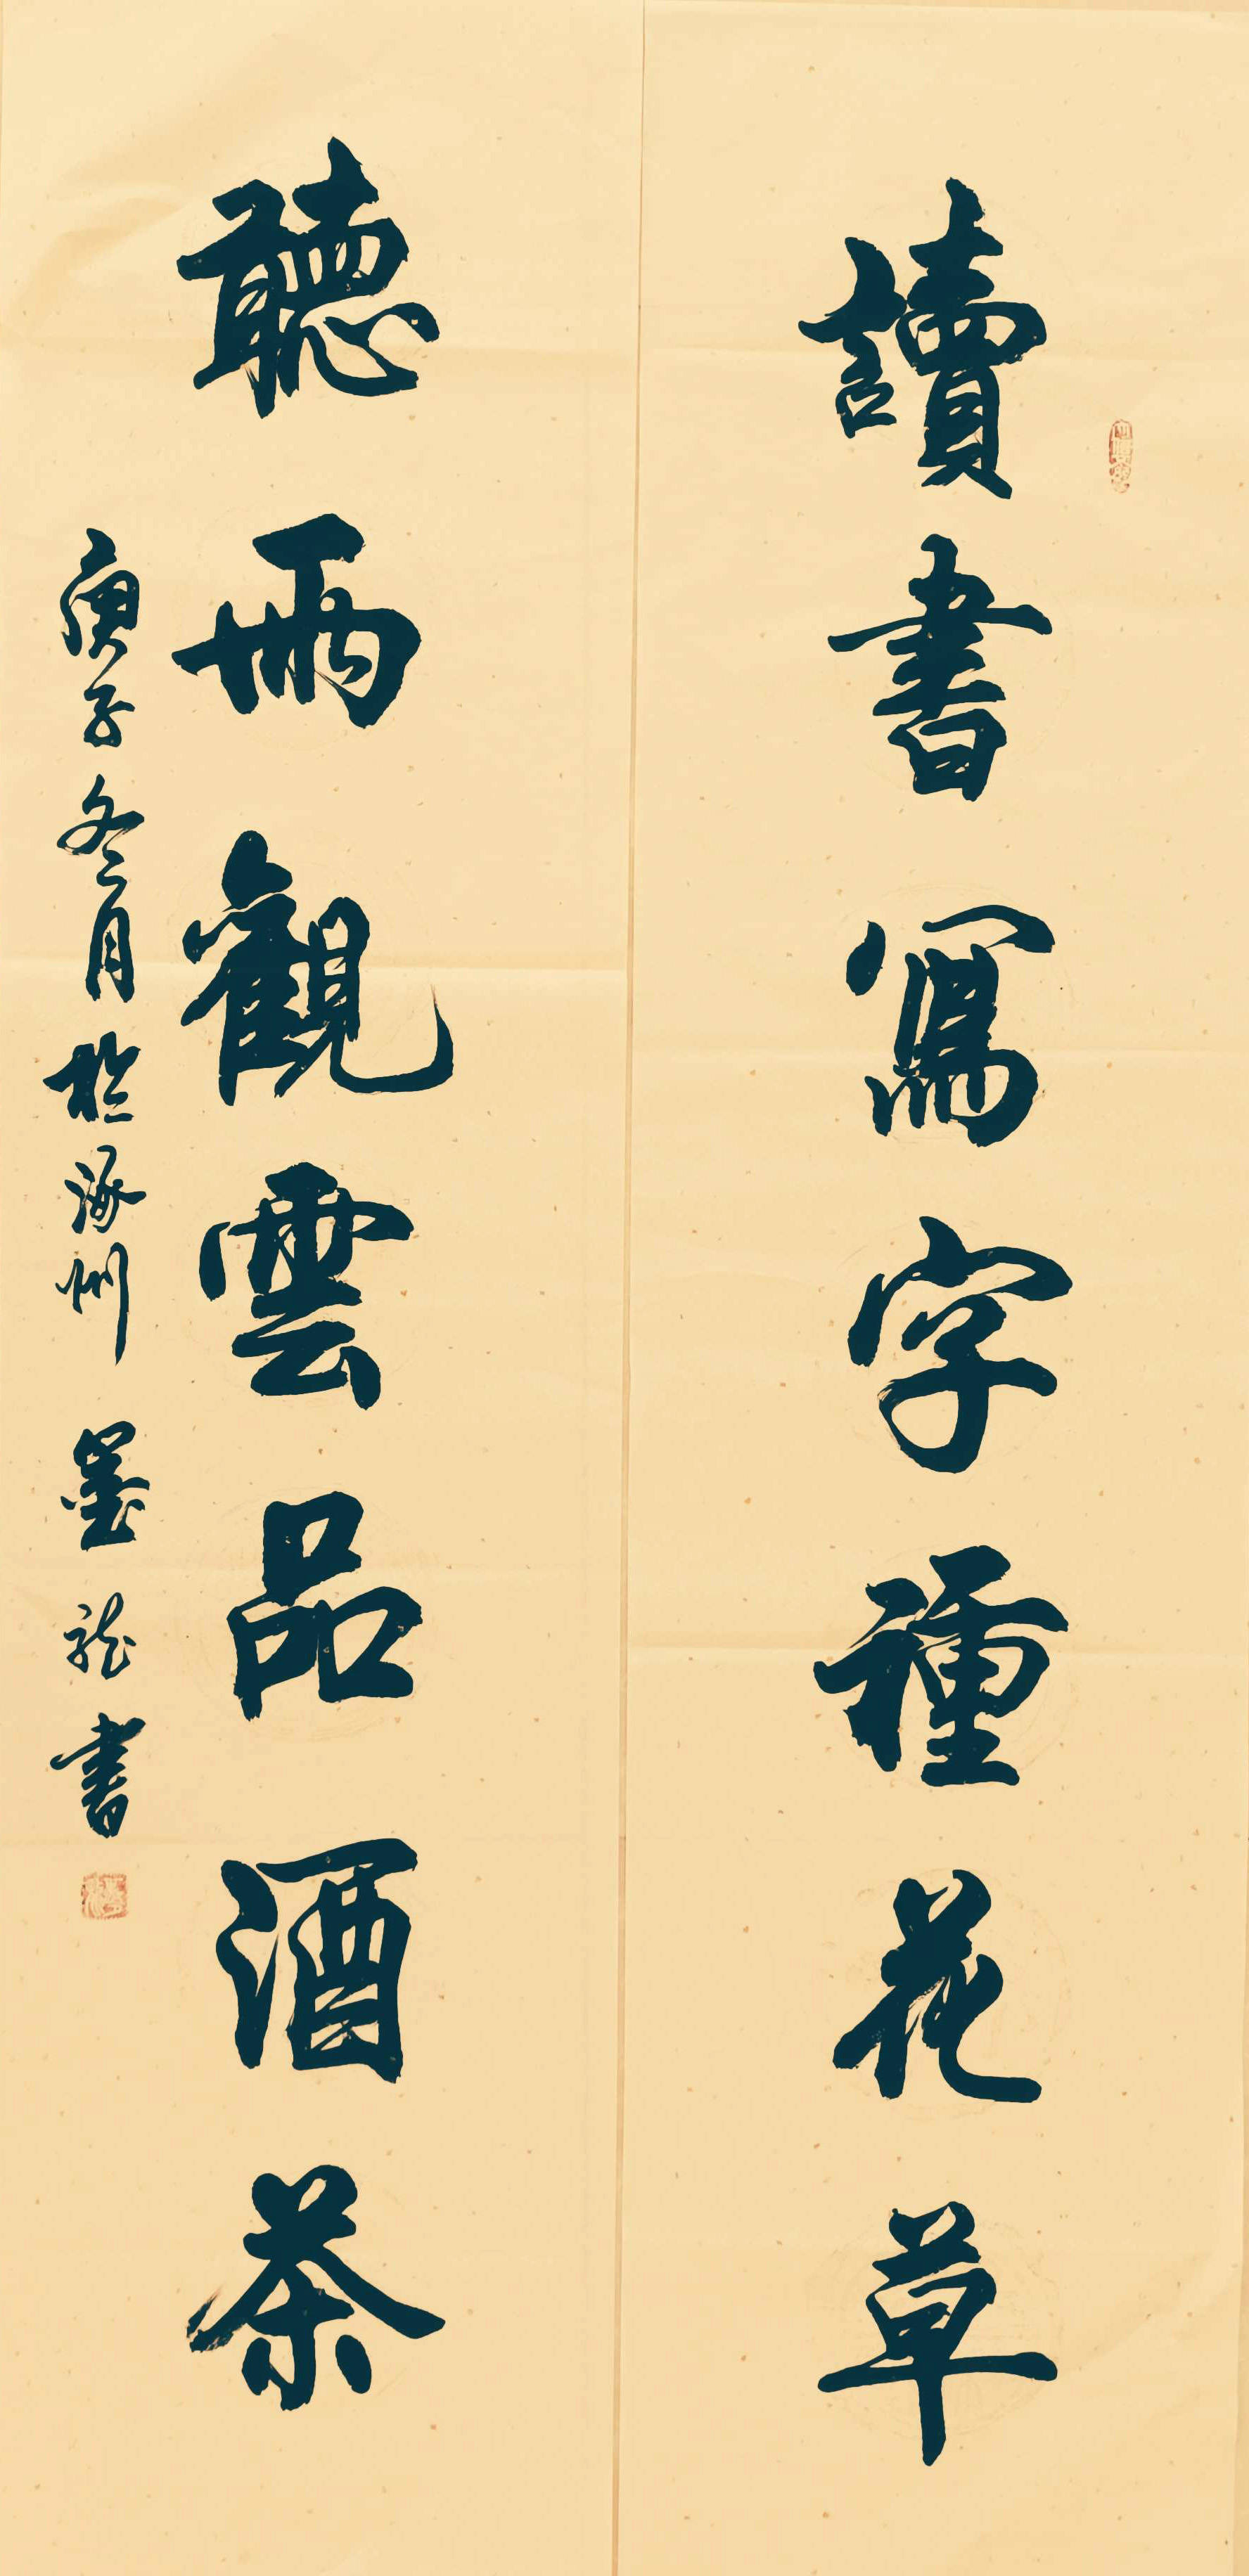 讀書寫字種花草
聽雨觀雲品酒茶
庚子冬月於涿州 墨龙書